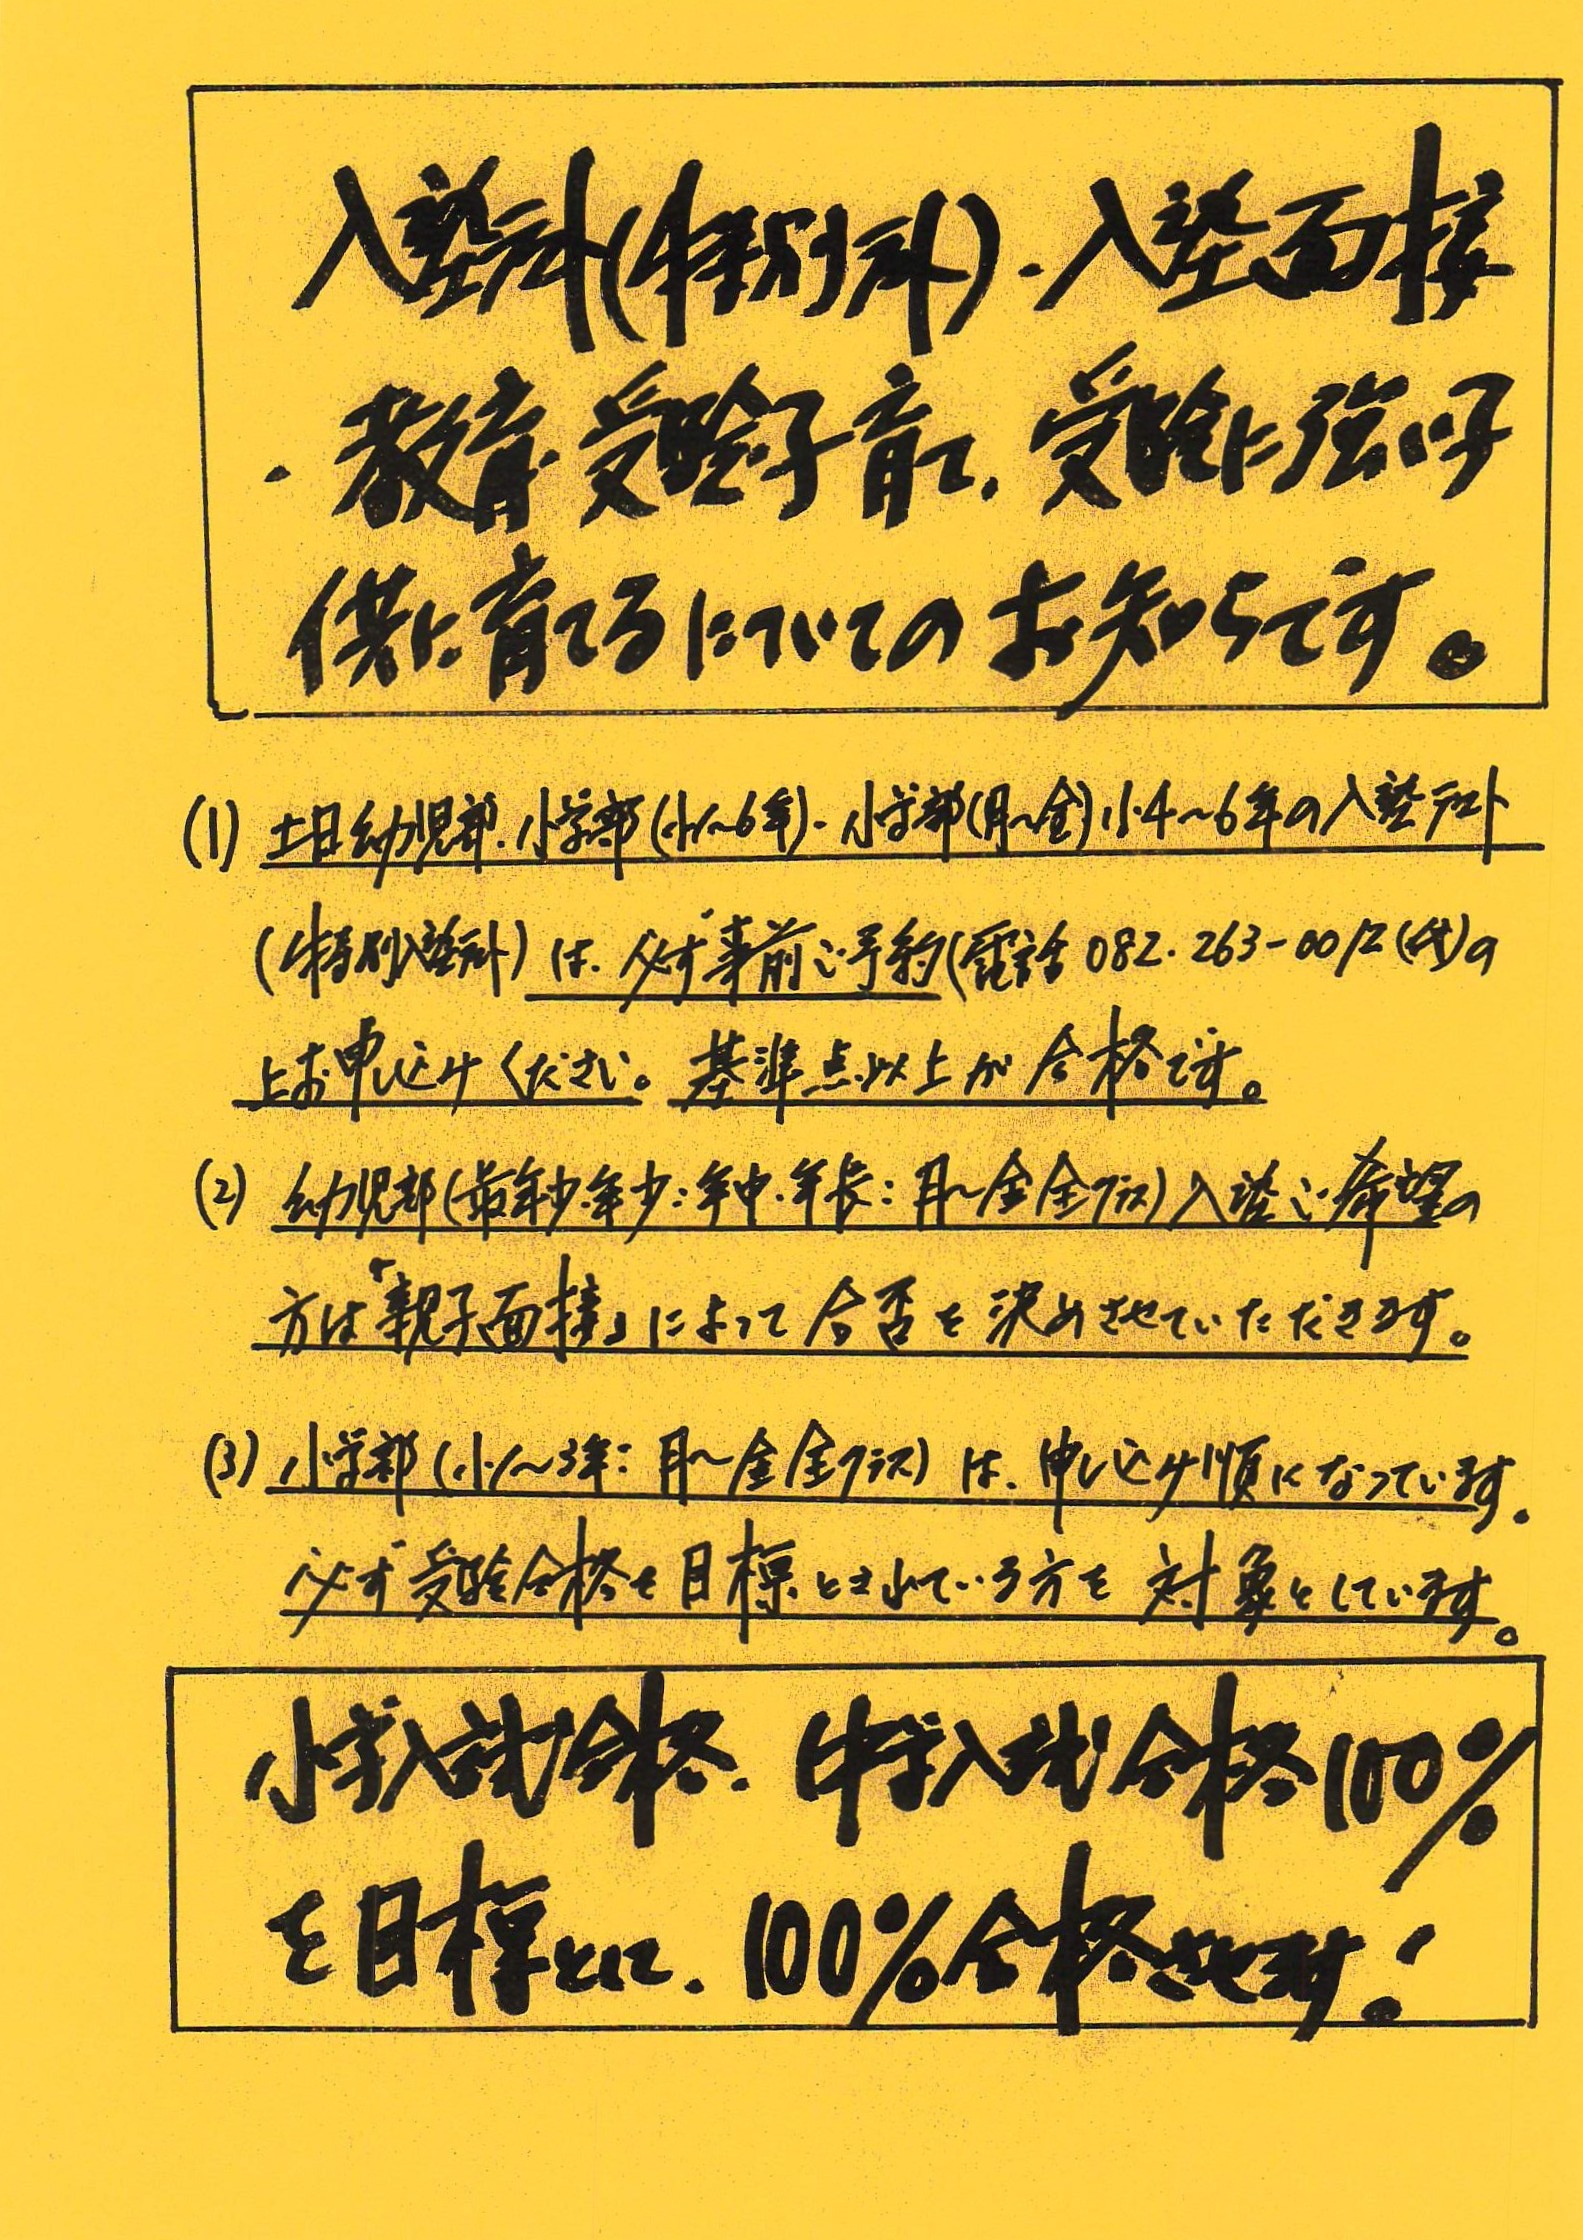 入塾テスト(特別テスト)・入塾面接
・教育・受験子育て、受験に強い子
供に育てるについてのお知らせです。
(1) 土日幼児部・小学部(小1〜6年)・小学部(月〜金)小4〜6年の入塾テスト
(特別入塾テスト)は、必ず事前ご予約(電話082・263-0012(代)の
上お申し込みください。基準点以上が合格です。
(2) 幼児部(最年少・年少:年中・年長:月〜金全クラス)入塾ご希望の
方は「親子面接」によって合否を決めさせていただきます。
(3) 小学部(小1〜3年:月〜金全クラス)は、申し込み順になっています。
必ず受験合格を目標とされている方を対象としています。
小学入試合格、中学入試合格100%
を目標として、100%合格させます!